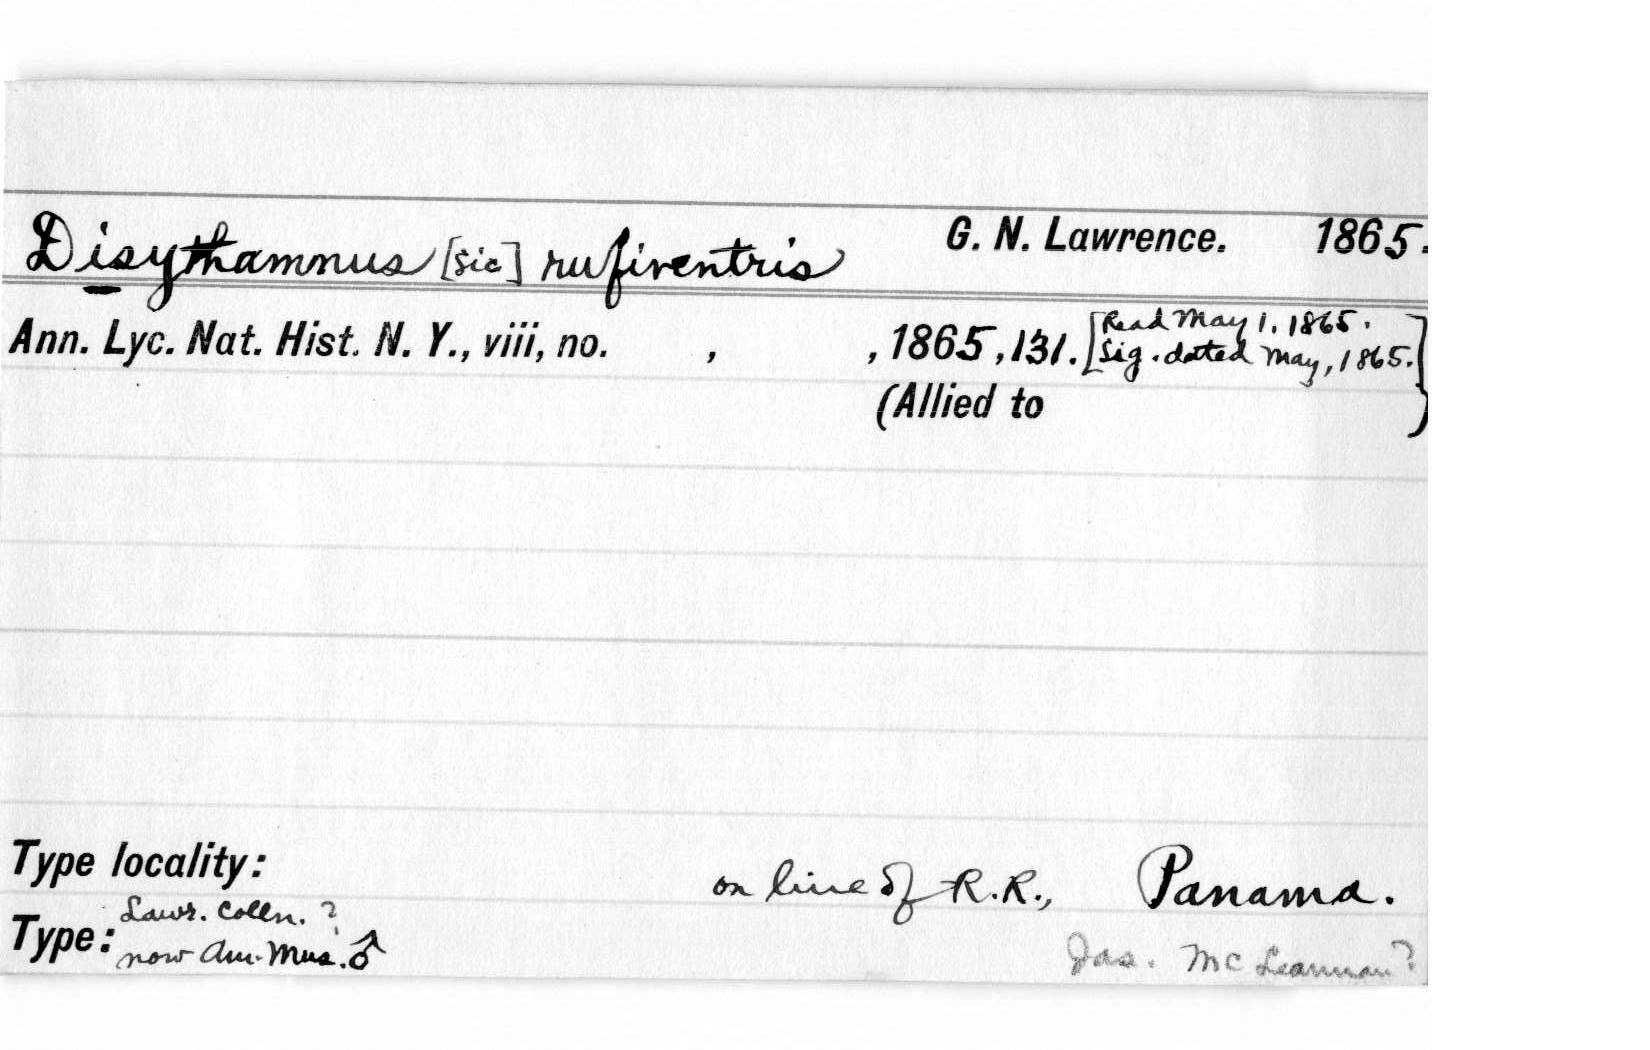 Disythamnus [sic] rufiventris G. N. Lawrence. 1865.
Ann. Lyc. Nat. Hist. N. Y., viii, no. , , 1865, 131. [Read May 1, 1865.
Sig. dated May, 1865.]
(Allied to )
Type locality: on line of R.R., Panama.
Type: Lawr. Colln. ?
now Am. Mus. ♂
Jas. McLeannan?